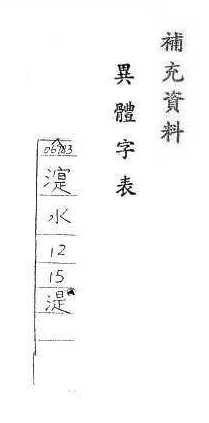 補充資料
異體字表
水
12
15
湜